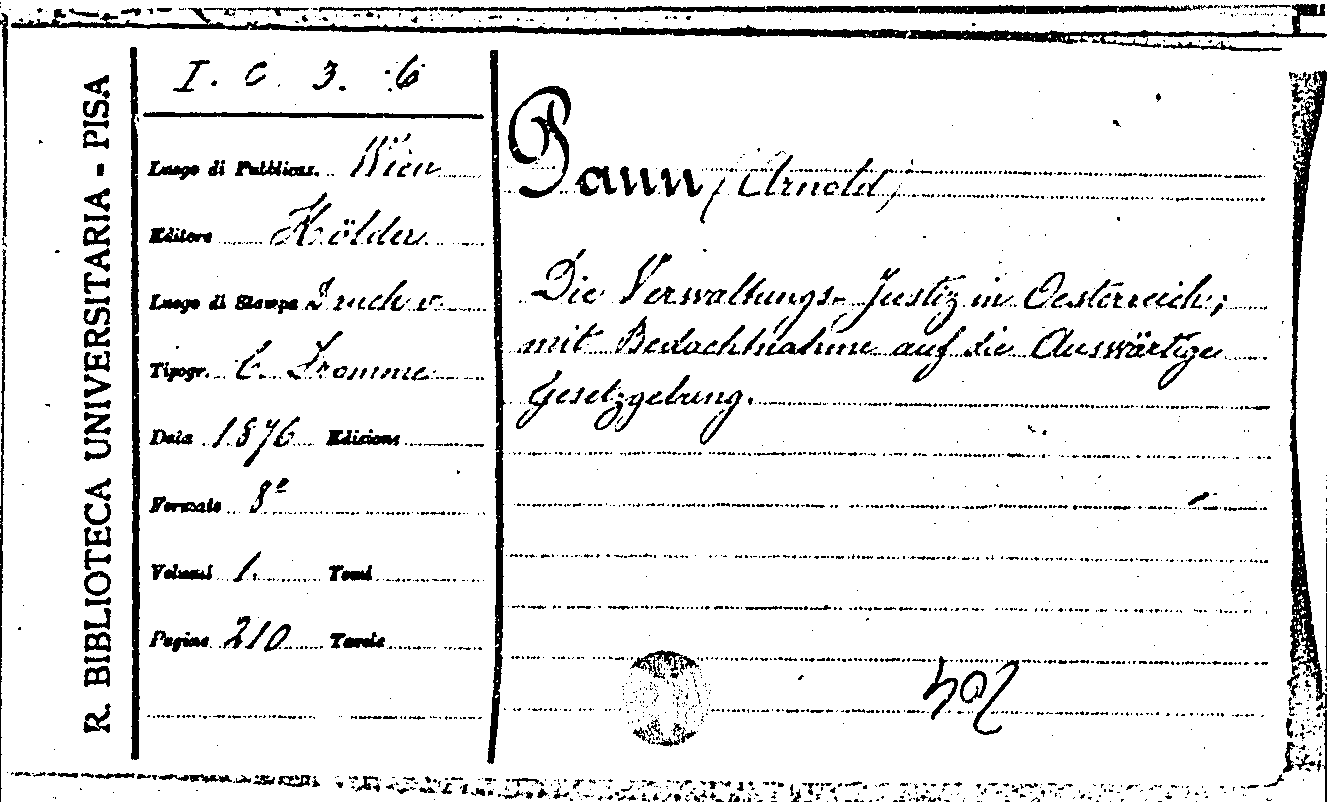 R. BIBLIOTECA UNIVERSITARIA - PISA
I. C. 3. 6
Luogo di Pubblicaz. Wien
Editore Hölder
Luogo di Stampa Druck v.
Tipogr. C. Fromme
Data 1876 Edizione
Formato 8°
Volumi 1. Tomi
Pagine 210 Tavole
Pann (Arnold)
Die Verwaltungs-Justiz in Oesterreich;
mit Bedachtnahme auf die Auswärtige
Gesetzgebung.